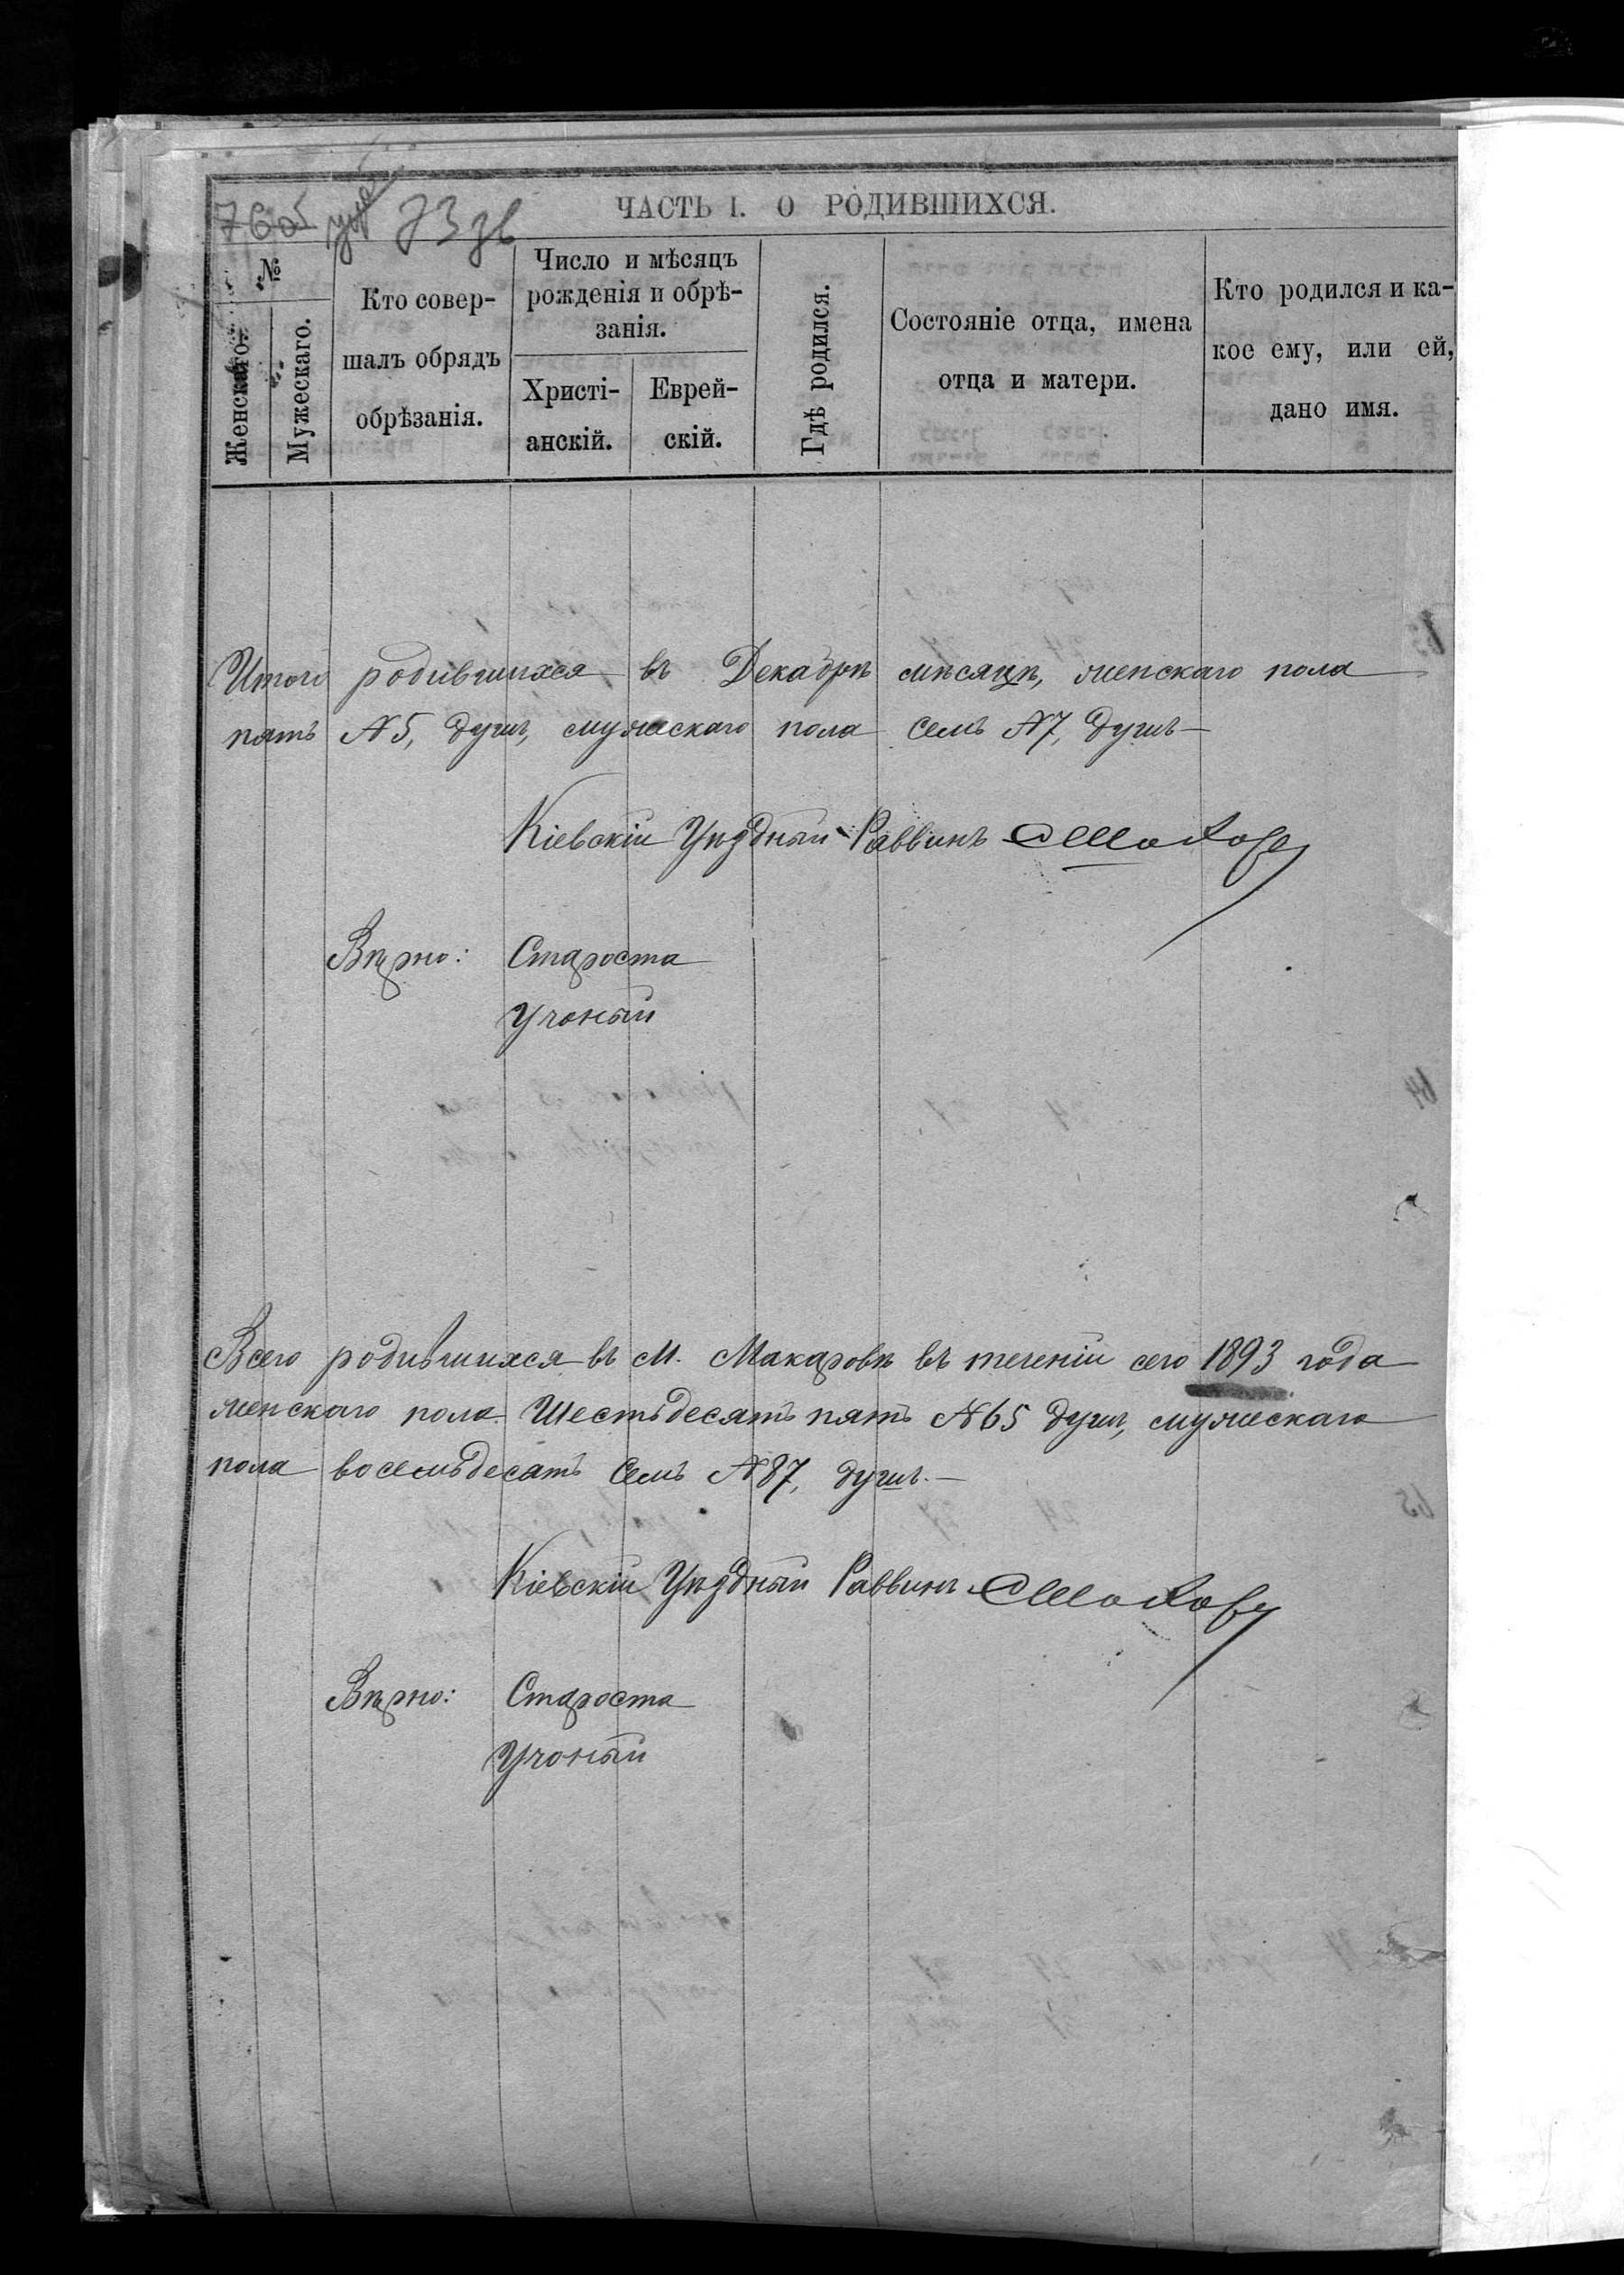 76об 73 зв
ЧАСТЬ I. О РОДИВШИХСЯ.
№
Женскаго.
Мужескаго.
Кто совер-
шалъ обрядъ
обрѣзанія.
Число и мѣсяцъ
рожденія и обрѣ-
занія.
Христі-
анскій.
Еврей-
скій.
Гдѣ родился.
Состояніе отца, имена
отца и матери.
Кто родился и ка-
кое ему, или ей,
дано имя.
Итого родившихся въ Декабрѣ мѣсяцѣ, женскаго пола
пять №5, душъ, мужескаго пола семь №7, душъ—
Кіевскій Уѣздный Раввинъ
Вѣрно: Староста
Учоный
Всего родившихся въ М. Макаровѣ въ теченіи сего 1893 года
женскаго пола Шестьдесятъ пять №65 душъ, мужескаго
пола восемьдесятъ семь №87, душъ.—
Кіевскій Уѣздный Раввинъ
Вѣрно: Староста
Учоный